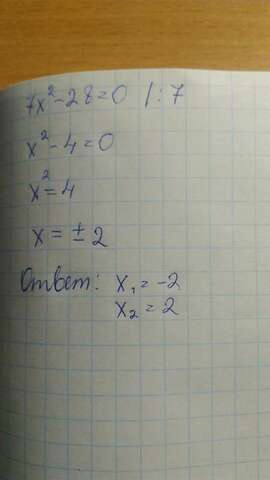 7x²-28=0 /:7
x²-4=0
x²=4
x=±2
Ответ: x₁=-2
x₂=2